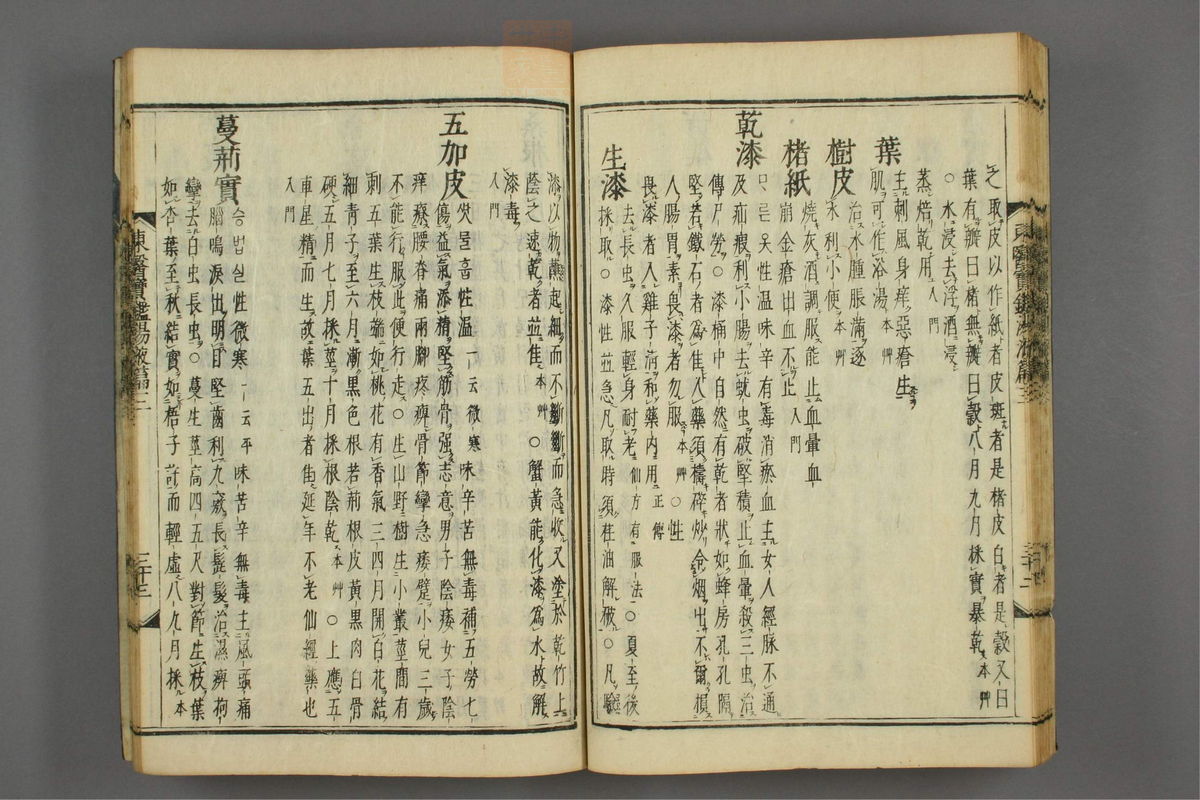 之取皮以作紙者皮斑者是楮皮白者是穀又曰
葉有瓣曰楮無瓣曰穀八月九月採實暴乾本艸
○水浸去浮酒浸
蒸焙乾用入門
葉
主刺風身痒惡瘡生
肌可作浴湯本艸
樹皮
治水腫脹滿逐
水利小便本艸
楮紙
燒灰酒調服能止血暈血
崩金瘡出血不止入門
乾漆
ᄆᆞ른옷性温味辛有毒消瘀血主女人經脉不通
及疝瘕利小腸去蚘虫破堅積止血暈殺三虫治
傳尸勞○漆桶中自然有乾者狀如蜂房孔孔隔
堅若鐵石者為佳入藥須擣碎炒令烟出不爾損
人腸胃素畏漆者勿服本艸○性
畏漆者人雞子淸和藥內用正傳
生漆
去長虫久服輕身耐老仙方有服法○夏至後
採取○漆性並急凡取時須荏油解破○凡驗
漆以物蘸起細而不斷斷而急收又塗於乾竹上
蔭之速乾者並佳本艸○蟹黃能化漆為水故解
漆毒
入門
五加皮
ᄯᅡᆺ둘흡性温一云微寒味辛苦無毒補五勞七
傷益氣添精堅筋骨强志意男子陰痿女子陰
痒療腰脊痛兩脚疼痺骨節攣急痿躄小兒三歲
不能行服此便行走○生山野樹生小叢莖間有
刺五葉生枝端如桃花有香氣三四月開白花結
細青子至六月漸黑色根若荊根皮黃黑肉白骨
硬五月七月採莖十月採根陰乾本艸○上應五
車星精而生故葉五出者佳延年不老仙經藥也
入門
蔓荊實
승법실性微寒一云平味苦辛無毒主風頭痛
腦鳴淚出明目堅齒利九竅長髭髮治濕痺拘
攣去白虫長虫○蔓生莖高四五尺對節生枝葉
如杏葉至秋結實如梧子許而輕虛八九月採本
東醫寶鑑湯液篇三
三十三